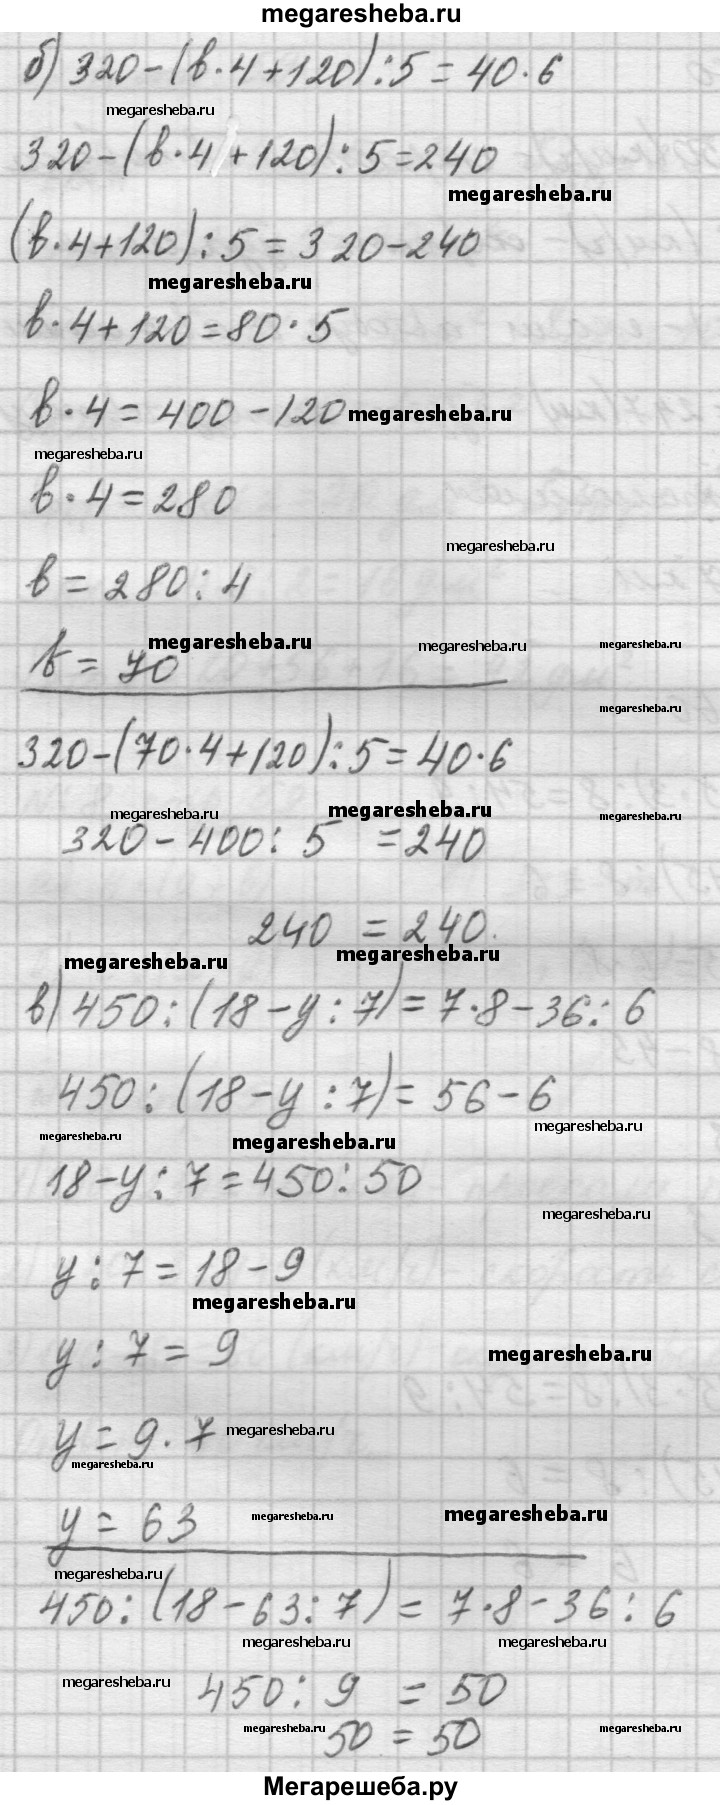 megaresheba.ru
б) 320-(в·4+120):5=40·6
megaresheba.ru
320-(в·4+120):5=240
megaresheba.ru
(в·4+120):5=320-240
megaresheba.ru
в·4+120=80·5
в·4=400-120 megaresheba.ru
megaresheba.ru
в·4=280
megaresheba.ru
в=280:4
megaresheba.ru megaresheba.ru megaresheba.ru
в=70
megaresheba.ru
320-(70·4+120):5=40·6
megaresheba.ru megaresheba.ru megaresheba.ru
320-400:5 =240
240 =240.
megaresheba.ru megaresheba.ru
в) 450:(18-y:7)=7·8-36:6
450:(18-y:7)=56-6
megaresheba.ru megaresheba.ru megaresheba.ru
18-y:7=450:50
megaresheba.ru
y:7=18-9
megaresheba.ru
y:7=9 megaresheba.ru
y=9·7 megaresheba.ru
megaresheba.ru
y=63 megaresheba.ru megaresheba.ru
megaresheba.ru
450:(18-63:7)=7·8-36:6
megaresheba.ru megaresheba.ru
megaresheba.ru 450:9 =50
megaresheba.ru 50=50 megaresheba.ru
Мегарешеба.ру